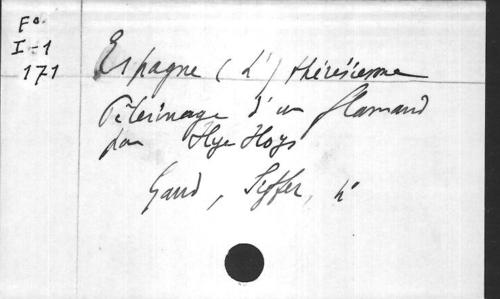 Fº
I-1
171
Espagne (L') thérésienne
Pélerinage d'un flamand
par Hye Hoys
Gand, Siffer, 4º